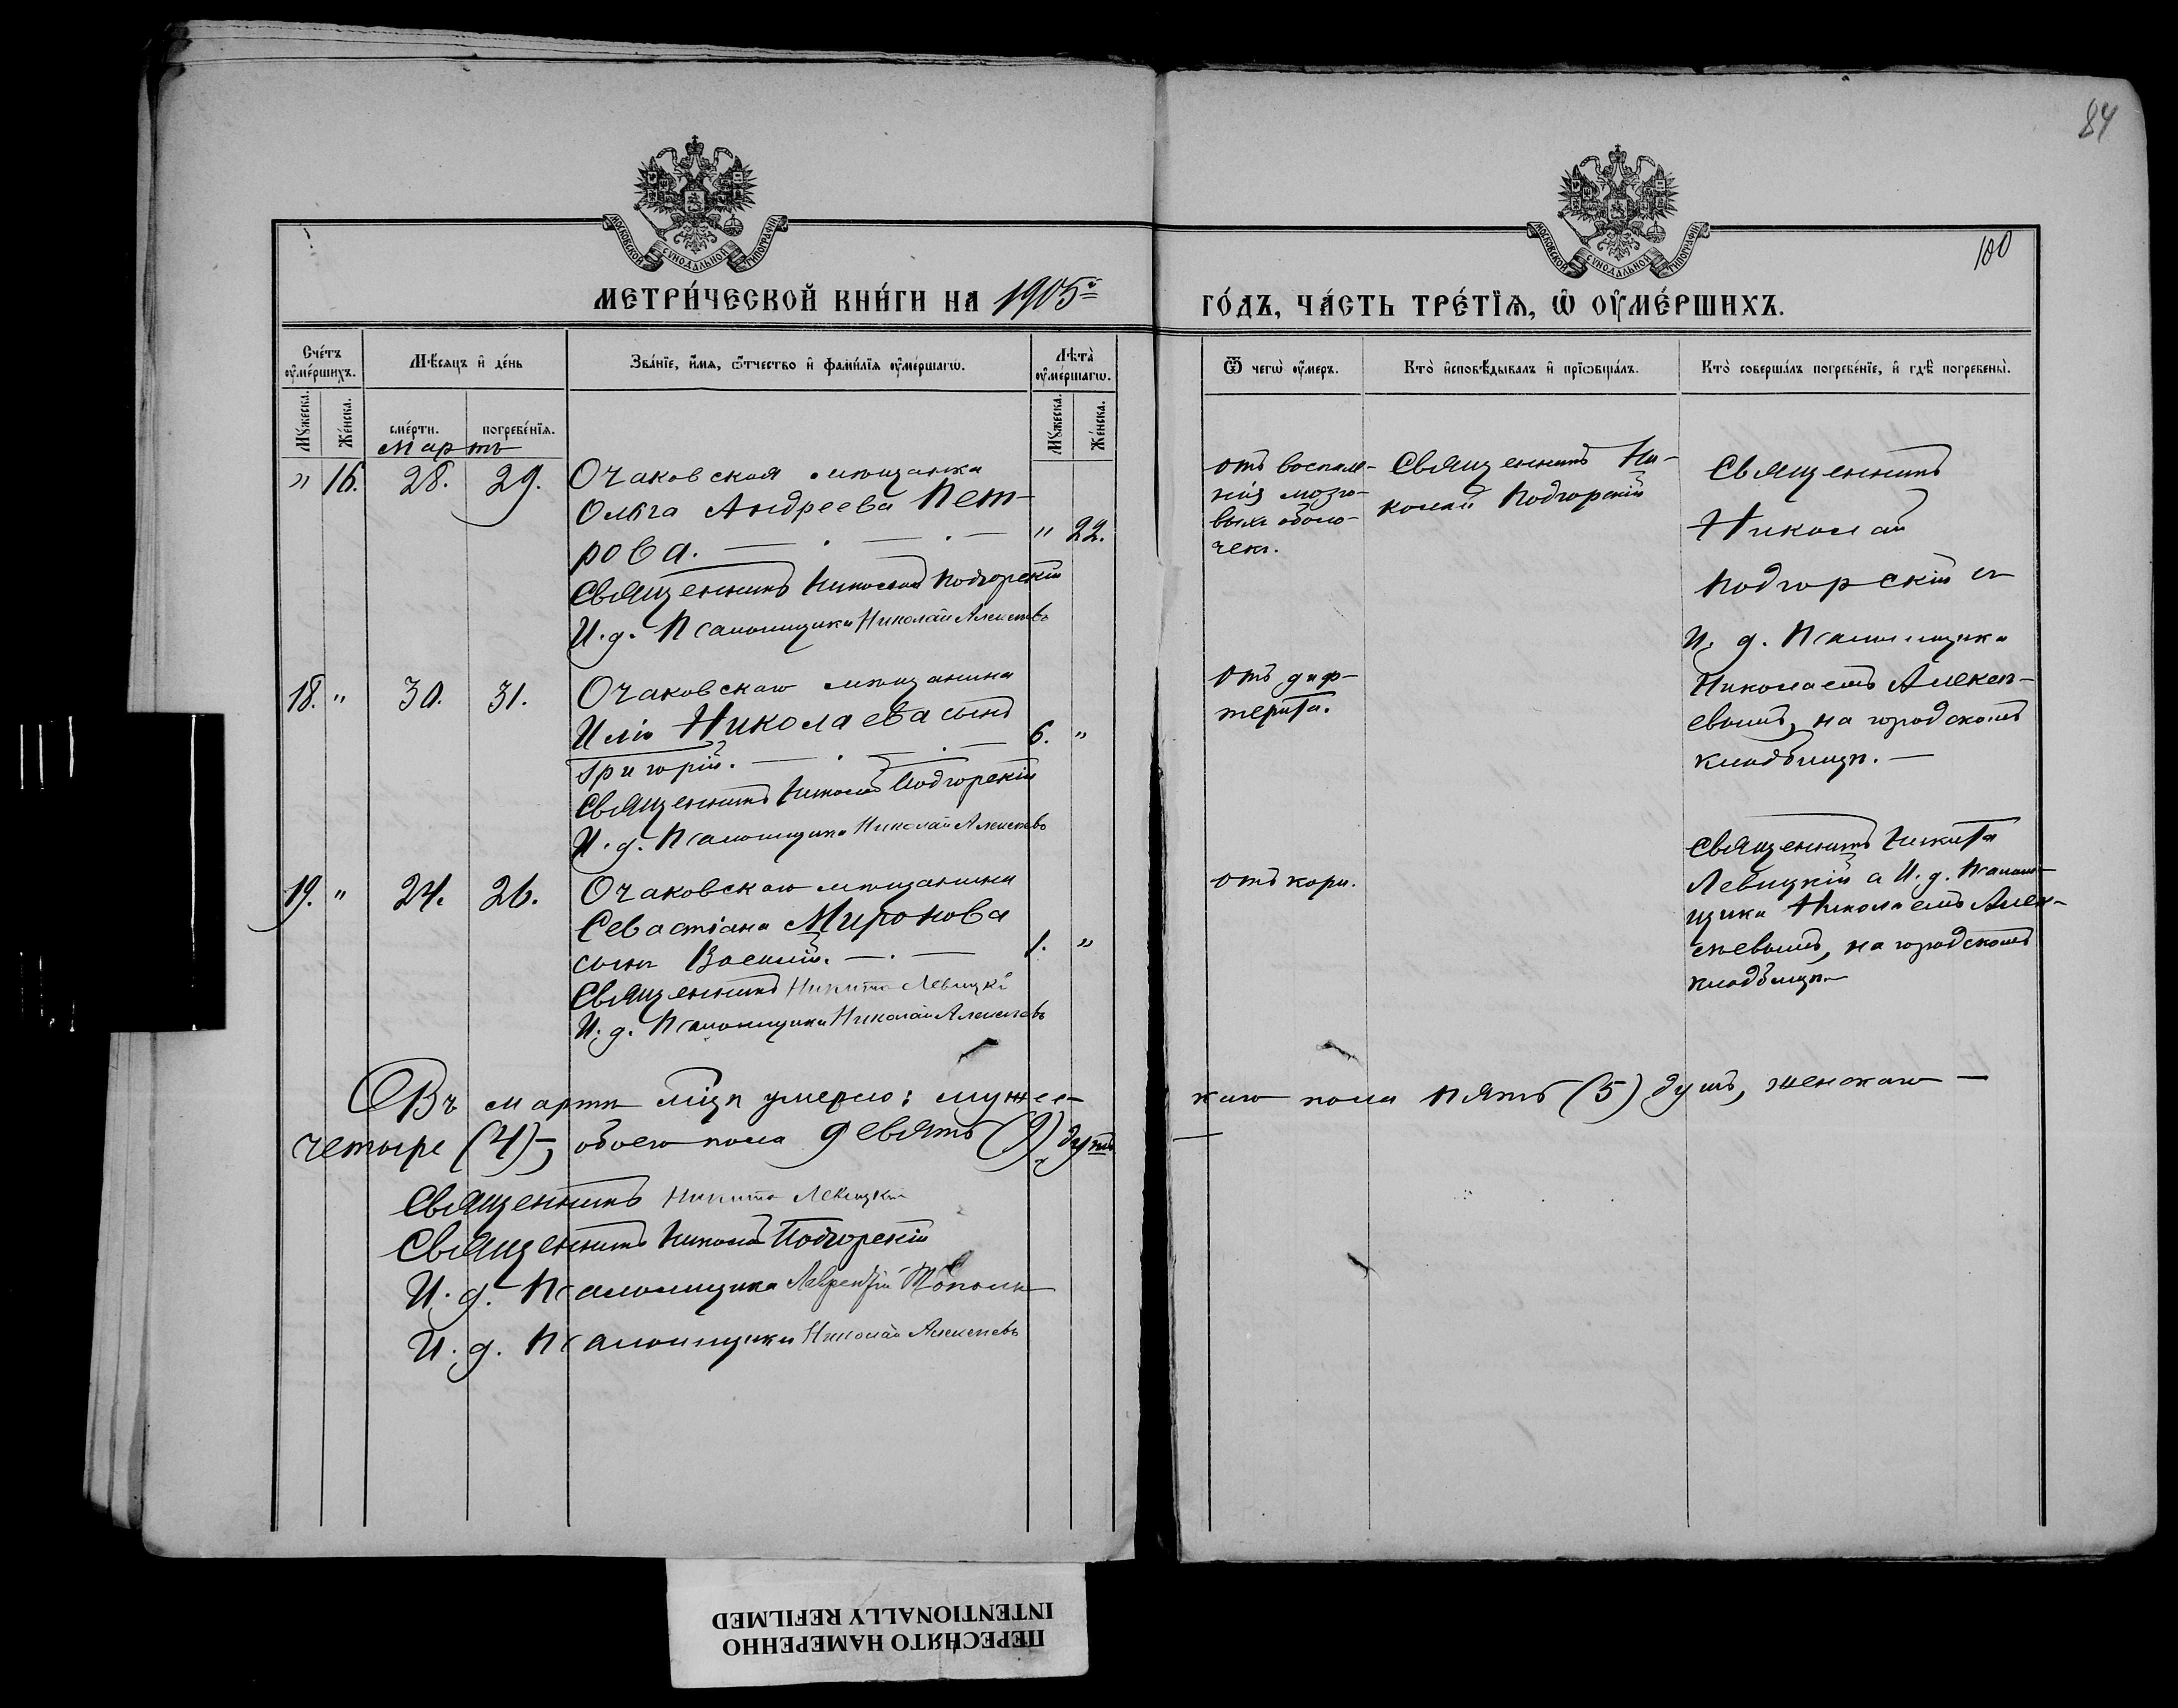 84
МОСКОВСКОЙ СѴНОДАЛЬНОЙ ТИПОГРАФІИ
МОСКОВСКОЙ СѴНОДАЛЬНОЙ ТИПОГРАФІИ
100
МЕТРИ́ЧЕСКОЙ КНИ́ГИ НА 1905й
ГО́ДЪ, ЧА́СТЬ ТРЕ́ТЇѦ, Ѿ ОУ҆МЕ́РШИХЪ.
Сче́тъ оу҆ме́ршихъ.
Мѣ́сяцъ и҆ де́нь
Зва́нїе, и҆́мя, ѻ҆́тчество и҆ фами́лїя оу҆ме́ршагѡ.
Лѣта̀ оу҆ме́ршагѡ.
Ѿ чегѡ̀ оу҆́меръ.
Кто̀ и҆сповѣ́дывалъ и҆ прїѡбща́лъ.
Кто̀ соверша́лъ погребе́нїе, и҆ гдѣ̀ погребены̀.
Мꙋ́жеска.
Же́нска.
сме́рти.
погребе́нїя.
Мꙋ́жеска.
Же́нска.
Мартъ
" 16. 28. 29. Очаковская мѣщанка
Ольга Андреева Пет-
рова. — . — . — " 22.
Священникъ Николай Подгорскій
И. д. Псаломщика Николай Алексѣевъ
отъ воспале-
нія мозго-
выхъ оболо-
чекъ.
Священникъ Ни-
колай Подгорскій
Священникъ
Николай
Подгорскій съ
И. д. Псаломщика
Николаемъ Алексѣ-
евымъ, на городскомъ
кладбищѣ. —
18. " 30. 31. Очаковскаго мѣщанина
Иліи Николаева сынъ
Григорій. — . — . — 6. "
Священникъ Николай Подгорскій
И. д. Псаломщика Николай Алексѣевъ
Отъ диф-
терита.
19. " 24. 26. Очаковскаго мѣщанина
Севастіана Миронова
сынъ Василій. — . — 1. "
Священникъ Никита Левицкій
И. д. Псаломщика Николай Алексѣевъ
отъ кори.
Священникъ Никита
Левицкій с И. д. Псалом-
щика Николаемъ Алек-
сѣевымъ, на городскомъ
кладбищѣ
Въ мартѣ мцѣ умерло: мужес-
каго пола пять (5) душъ, женскаго —
четыре (4) —, обоего пола девять (9) душъ
Священникъ Никита Левицкій
Священникъ Николай Подгорскій
И. д. Псаломщика Лаврентій
И. д. Псаломщика Николай Алексѣевъ
ПЕРЕСНЯТО НАМЕРЕННО
INTENTIONALLY REFILMED